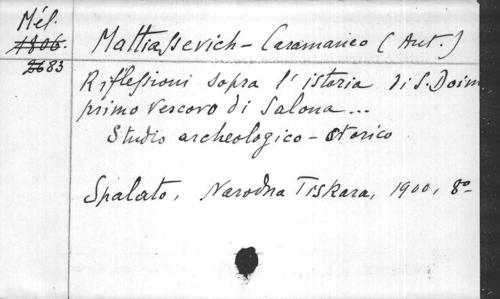 Mél.
1806.
2683
Mattiassevich-Caramaneo (Ant.)
Riflessioni sopra l'istoria di S. Doimo
primo Vescovo di Salona...
Studio archeologico-storico
Spalato, Narodna Tiskara, 1900, 8º